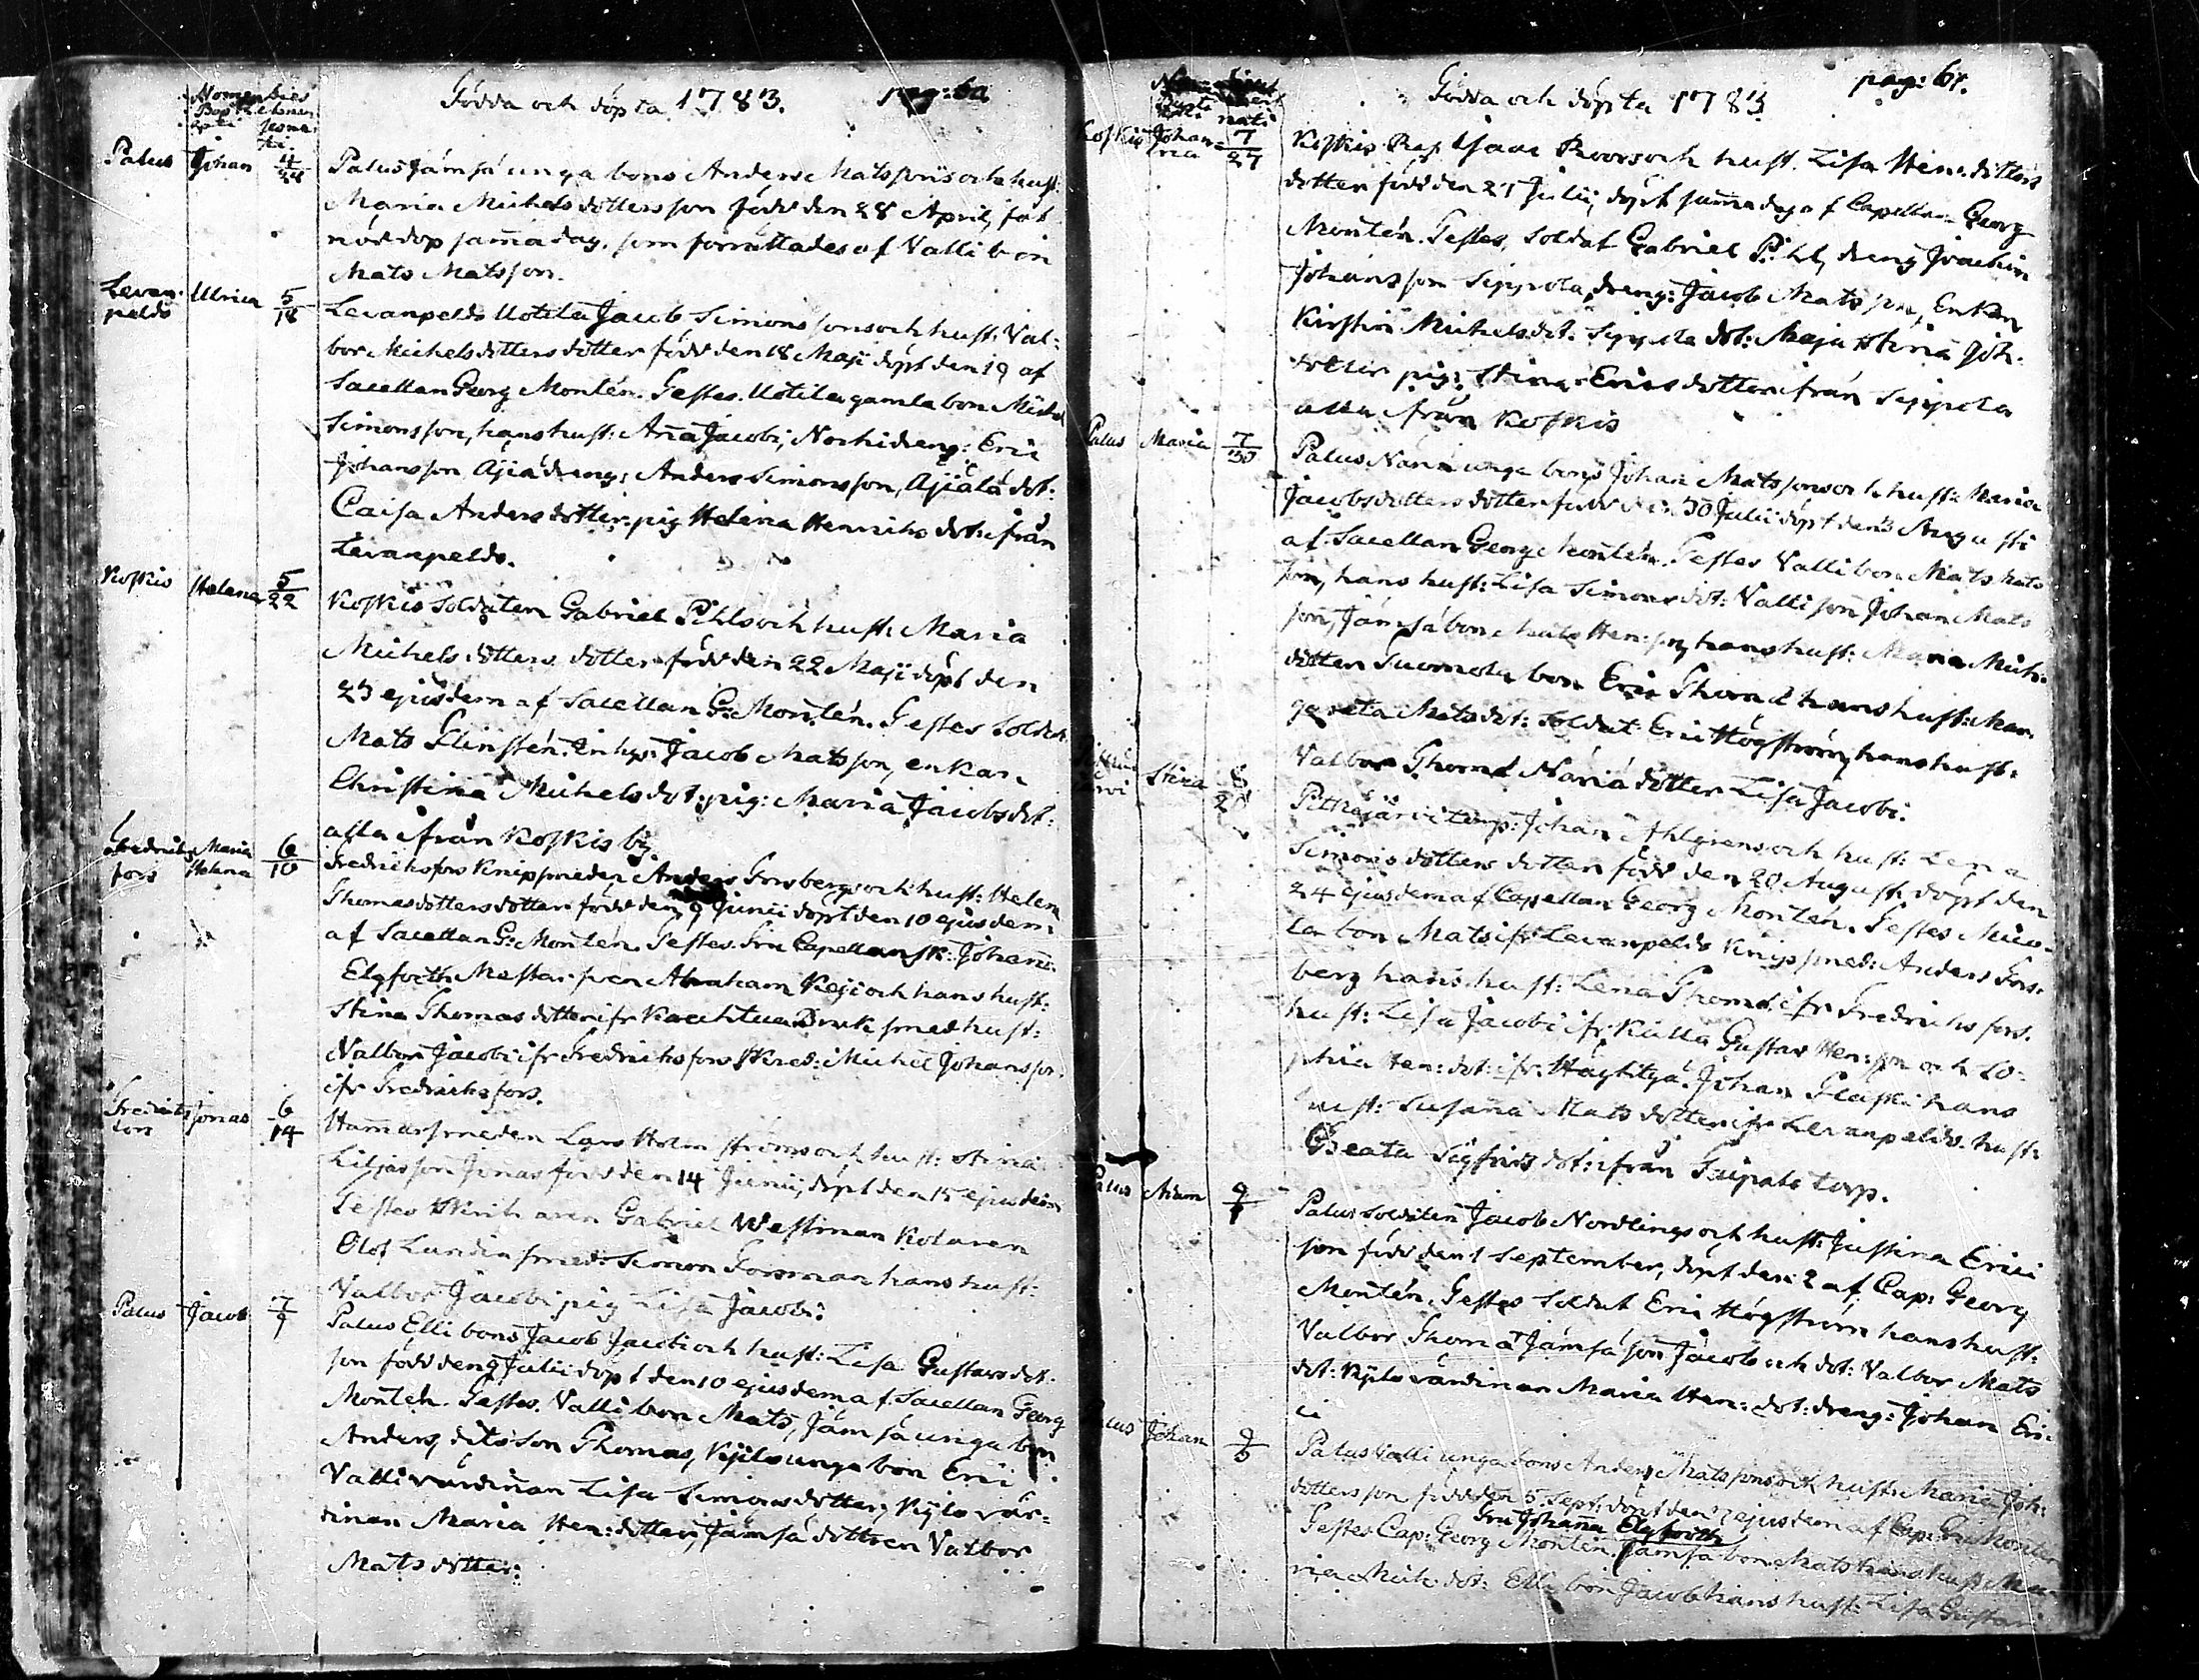 Födda och döpta 1783.
Palus Johan 4/28
Palus Jämsä unga bons Anders Matssons och hust:
Maria Michelsdotters son född den 28 April, fåt
nöddop samma dag. som förrättades af Valli bon
Mats Matsson.
Levanpeldo Ulrica 5/18
Levanpeldo Uotila Jacob Simonssons och hust: Val:
bor Michelsdotters dotter född den 18 Maji döpt den 19 af
Sacellan Georg Montén. Testes. Uotila gamla bon Michel
Simonsson, hans hust: Anna Jacobi, dreng: Eric
Johansson, Äjälä dreng: Anders Simonsson, Äjälä dot:
Caisa Andersdotter. pig Helena Henrichs dot: ifrån
Levanpeldo.
Koskis Helena 5/22
Koskis Soldaten Gabriel Pihls och hust: Maria
Michelsdotters dotter född den 22 Maji döpt den
23 ejusdem af Sacellan G: Montén. Testes Soldat
Mats Flinstén. Inhys: Jacob Matsson, enkan
Christina Michelsdot: pig: Maria Jacobsdot:
alla ifrån Koskis by.
Fredrichsfors Maria Helena 6/10
Fredrichsfors Knipsmeden Anders Forsbergs och hust: Helena
Thomasdotters dotter född den 9 Junii döpt den 10 ejusdem
af Sacellan G: Montén. Testes. Fru Capellansk: Johanna
Elgforth. Mästar sven Abraham Keji och hans hust:
Stina Thomasdotter ifr Kauttua Bruk smed hust:
Valbor Jacobi ifr Fredrichsfors Skred: Michel Johansson
ifr Fredrichsfors.
Fredrichsfors Jonas 6/14
Hammarsmeden Lars Holmströms och hust: Stina
Liljas son Jonas född den 14 Junii, döpt den 15 ejusdem
Testes Gabriel Westman Kolaren
Olof Lundin smed: Simon Forsman hans hust:
Valbor Jacobi pig Lisa Jacobi:
Palus Jacob 7/9
Palus Elli bons Jacob Jacobi och hust: Lisa Gustavsdot:
son född den 9 Julii döpt den 10 ejusdem af Sacellan Georg
Montén. Testes. Valli bon Mats, Jämsä unga bon
Anders, dito son Thomas, Kylo unga bon Eric
Valli värdinnan Lisa Simonsdotter, Kylo vär-
dinnan Maria Hen: dotter, Jämsä dottren Valbor
Matsdotter:
Födda och döpta 1783 pag: 61.
Koskis Johanna 7/27
Koskis Isaac Roos och hust. Lisa Hen: dotters
dotter född den 27 Julii, döpt samma dag af Capellan Georg
Montén. Testes, Soldat Gabriel Pihl, dreng Joachim
Johansson Seppola, dreng: Jacob Matsson, Enkan
Kirstin Michelsdot. Seppola dot: Maja Stina Joh:
dotter pig: Stina Ericsdotter ifrån Seppola
alla ifrån Koskis
Palus Maria 7/30
Palus Näriä unga bons Johan Matssons och hust: Maria
Jacobsdotters dotter född den 30 Julii döpt den 3 Augusti
af Sacellan Georg Montén. Testes Valli bon Mats Mats
son, hans hust: Lisa Simonsdot: Valli son Johan Mats
son, Jämsä bon Mats Hen: son, hans hust: Maria Mich:
dotter Suomela bon Eric Thomæ hans hust: Mar-
gareta Matsdot: Soldat Eric Högström, hans hust:
Valbor Thomæ Näriä dotter Lisa Jacobi.
Pitkäjärvi Stina 8/20
Pitkäjärvi torp: Johan Ahlgrens och hust: Lena
Simonsdotters dotter född den 20 August. döpt den
24 ejusdem af Capellan Georg Montén. Testes
bon Mats ifr Levanpeldo Knipsmed: Anders Fors-
berg hans hust: Lena Thomæ ifr Fredrichsfors.
hust: Lisa Jacobi ifr Kulla Gustav Hen: son och So-
phia Hen: dot: ifr. Johan hans
hust: Susanna Matsdotter ifr Levanpeldo. hust:
Beata Sigfrids dot: ifrån torp.
Palus 9/1
Palus soldaten Jacob Nordlings och hust: Justina Erici
son född den 1 September, döpt den 2 af Cap: Georg
Montén. Testes Soldat Eric Högström hans hust:
Valbor Thomæ Jämsä son Jacob och dot: Valbor Mats
dot: Kylo värdinnan Maria Hen: dot: dreng: Johan Eri-
ci
Palus Johan 9/5
Palus Valli unga bons Anders Matssons och hust: Maria Joh:
dotters son född den 5 Sept: döpt den 7 ejusdem af Cap: Montén
Fru Johanna Elgforth
Testes Cap: Georg Montén. Jämsä bon Mats hans hust: Ma-
ria Mich: dot: Elli bon Jacob hans hust: Lisa Gustavi